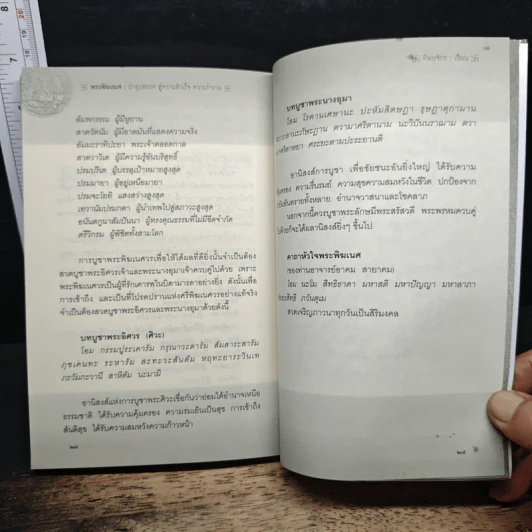 พระพิฆเนศ : บำรุงทรวง สู่ความสำเร็จ ความร่ำรวย
สัมพกรรณ ผู้มีหูยาน
สาศวัตนัม ผู้มีอาตมันที่แสดงความจริง
สาตวาวิเต ผู้มีความรู้อันบริสุทธิ์
ปรมปรีเต ผู้บรรลุเป้าหมายสูงสุด
ปรมมายา ผู้อยู่เหนือมายา
ปรมจะโยติ แสงสว่างสูงสุด
เทวานัมปรมกตา ผู้นำเทพไปสู่สภาวะสูงสุด
อนันตคุณาสัมปันนา ผู้ทรงคุณธรรมที่ไม่มีขีดจำกัด
ตรีวิกรม ผู้พิชิตทั้งสามโลก
การบูชาพระพิฆเนศวรเพื่อให้ได้ผลที่ดียิ่งนั้นจำเป็นต้อง
สวดบูชาพระอิศวรเจ้าและพระนางอุมาเจ้าควบคู่ไปด้วย เพราะ
พระพิฆเนศวรเป็นผู้ที่รักเคารพในบิดามารดาอย่างยิ่ง ดังนั้นเพื่อ
การเข้าถึง และเป็นที่โปรดปรานแห่งศรีพิฆเนศวรอย่างแท้จริง
จำเป็นต้องสวดบูชาพระอิศวรและพระนางอุมาด้วยดังนี้
บทบูชาพระอิศวร (ศิวะ)
โอม กรรมปูระเคารัม กรุณาวะตารัม สัมสาระสารัม
ภุชะเคนทะ ระหารัม สะทะวะสันตัม หฤทะยาระวินเท
ภะวัมภะวานี สาหิตัม นะมามี
อานิสงส์แห่งการบูชาพระศิวะเชื่อกันว่าย่อมได้อำนาจเหนือ
ธรรมชาติ ได้รับความคุ้มครอง ความร่มเย็นเป็นสุข การเข้าถึง
สันติสุข ได้รับความสมหวังความก้าวหน้า
ทิพยจักร : เขียน
บทบูชาพระนางอุมา
อานิสงส์การบูชา เพื่อชัยชนะอันยิ่งใหญ่ ได้รับความ
คุ้มครอง ความรื่นรมย์ ความสุขความสมหวังในชีวิต ปกป้องจาก
อันตรายทั้งหลาย อำนาจวาสนาและโชคลาภ
นอกจากนี้ควรบูชาพระลักษมีพระสรัสวดี พระพรหมควบคู่
ไปด้วยก็จะได้ผลานิสงส์ยิ่งๆ ขึ้นไป
คาถาหัวใจพระพิฆเนศ
(ของท่านอาจารย์อาคม สายาคม)
โอม นะโม สิทธิธาดา มหาสติ มหาปัญญา มหาลาภา
สวดเจริญภาวนาทุกวันเป็นสิริมงคล